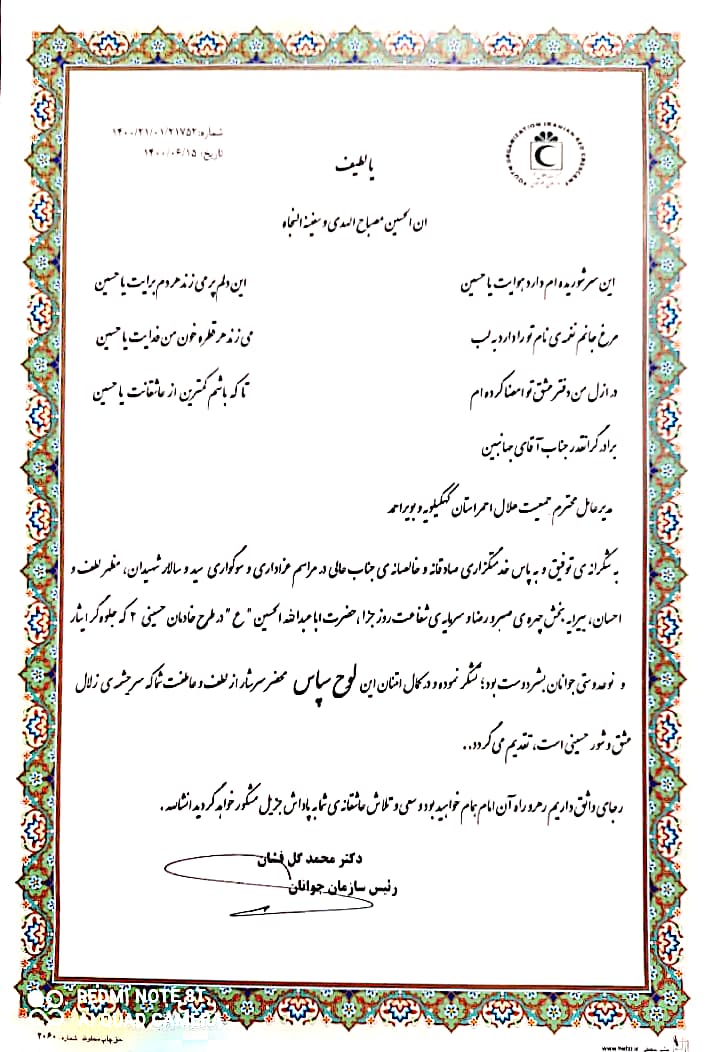 شماره: ۱۴۰۰/۲۱/۰۱/۲۱۷۵۲
تاریخ: ۱۴۰۰/۰۶/۱۵
YOUTH ORGANIZATION IRANIAN RED CRESCENT
یا لطیف
ان الحسین مصباح الهدی و سفینة النجاه
این سر شوریده ام دارد هوایت یا حسین این دلم پر می زند هر دم برایت یا حسین
مرغ جانم نغمه ی نام تو را دارد به لب می زند هر قطره خون من فدایت یا حسین
در ازل من دفتر عشق تو امضا کرده ام تا که باشم کمترین از عاشقانت یا حسین
برادر گرانقدر جناب آقای جهانبین
مدیر عامل محترم جمعیت هلال احمر استان کهگیلویه و بویراحمد
به شکرانه ی توفیق و به پاس خدمتگزاری صادقانه و خالصانه ی جناب عالی در مراسم عزاداری و سوگواری سید و سالار شهیدان، مظهر لطف و
احسان، پیرایه بخش چهره ی صبر و رضا و سرمایه ی شفاعت روز جزا، حضرت اباعبدالله الحسین "ع" در طرح خادمان حسینی ۲ که جلوه گر ایثار
و نوعدوستی جوانان بشردوست بود؛ تشکر نموده و در کمال امتنان این لوح سپاس محضر سرشار از لطف و عاطفت شما که سرچشمه ی زلال
عشق و شور حسینی است، تقدیم می گردد..
رجای واثق داریم رهرو راه آن امام همام خواهید بود و سعی و تلاش عاشقانه ی شما به پاداش جزیل مشکور خواهد گردید انشاالله.
دکتر محمد گل فشان
رئیس سازمان جوانان
REDMI NOTE 8T
AI QUAD CAMERA
حق چاپ محفوظ شماره ۲۰۶۰